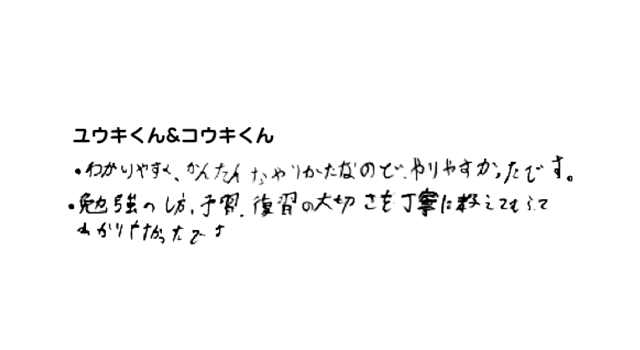 ユウキくん&コウキくん
・わかりやすく、かんたんなやりかたなので、やりやすかったです。
・勉強のし方、予習、復習の大切さを丁寧に教えてもらって
わかりやすかったです